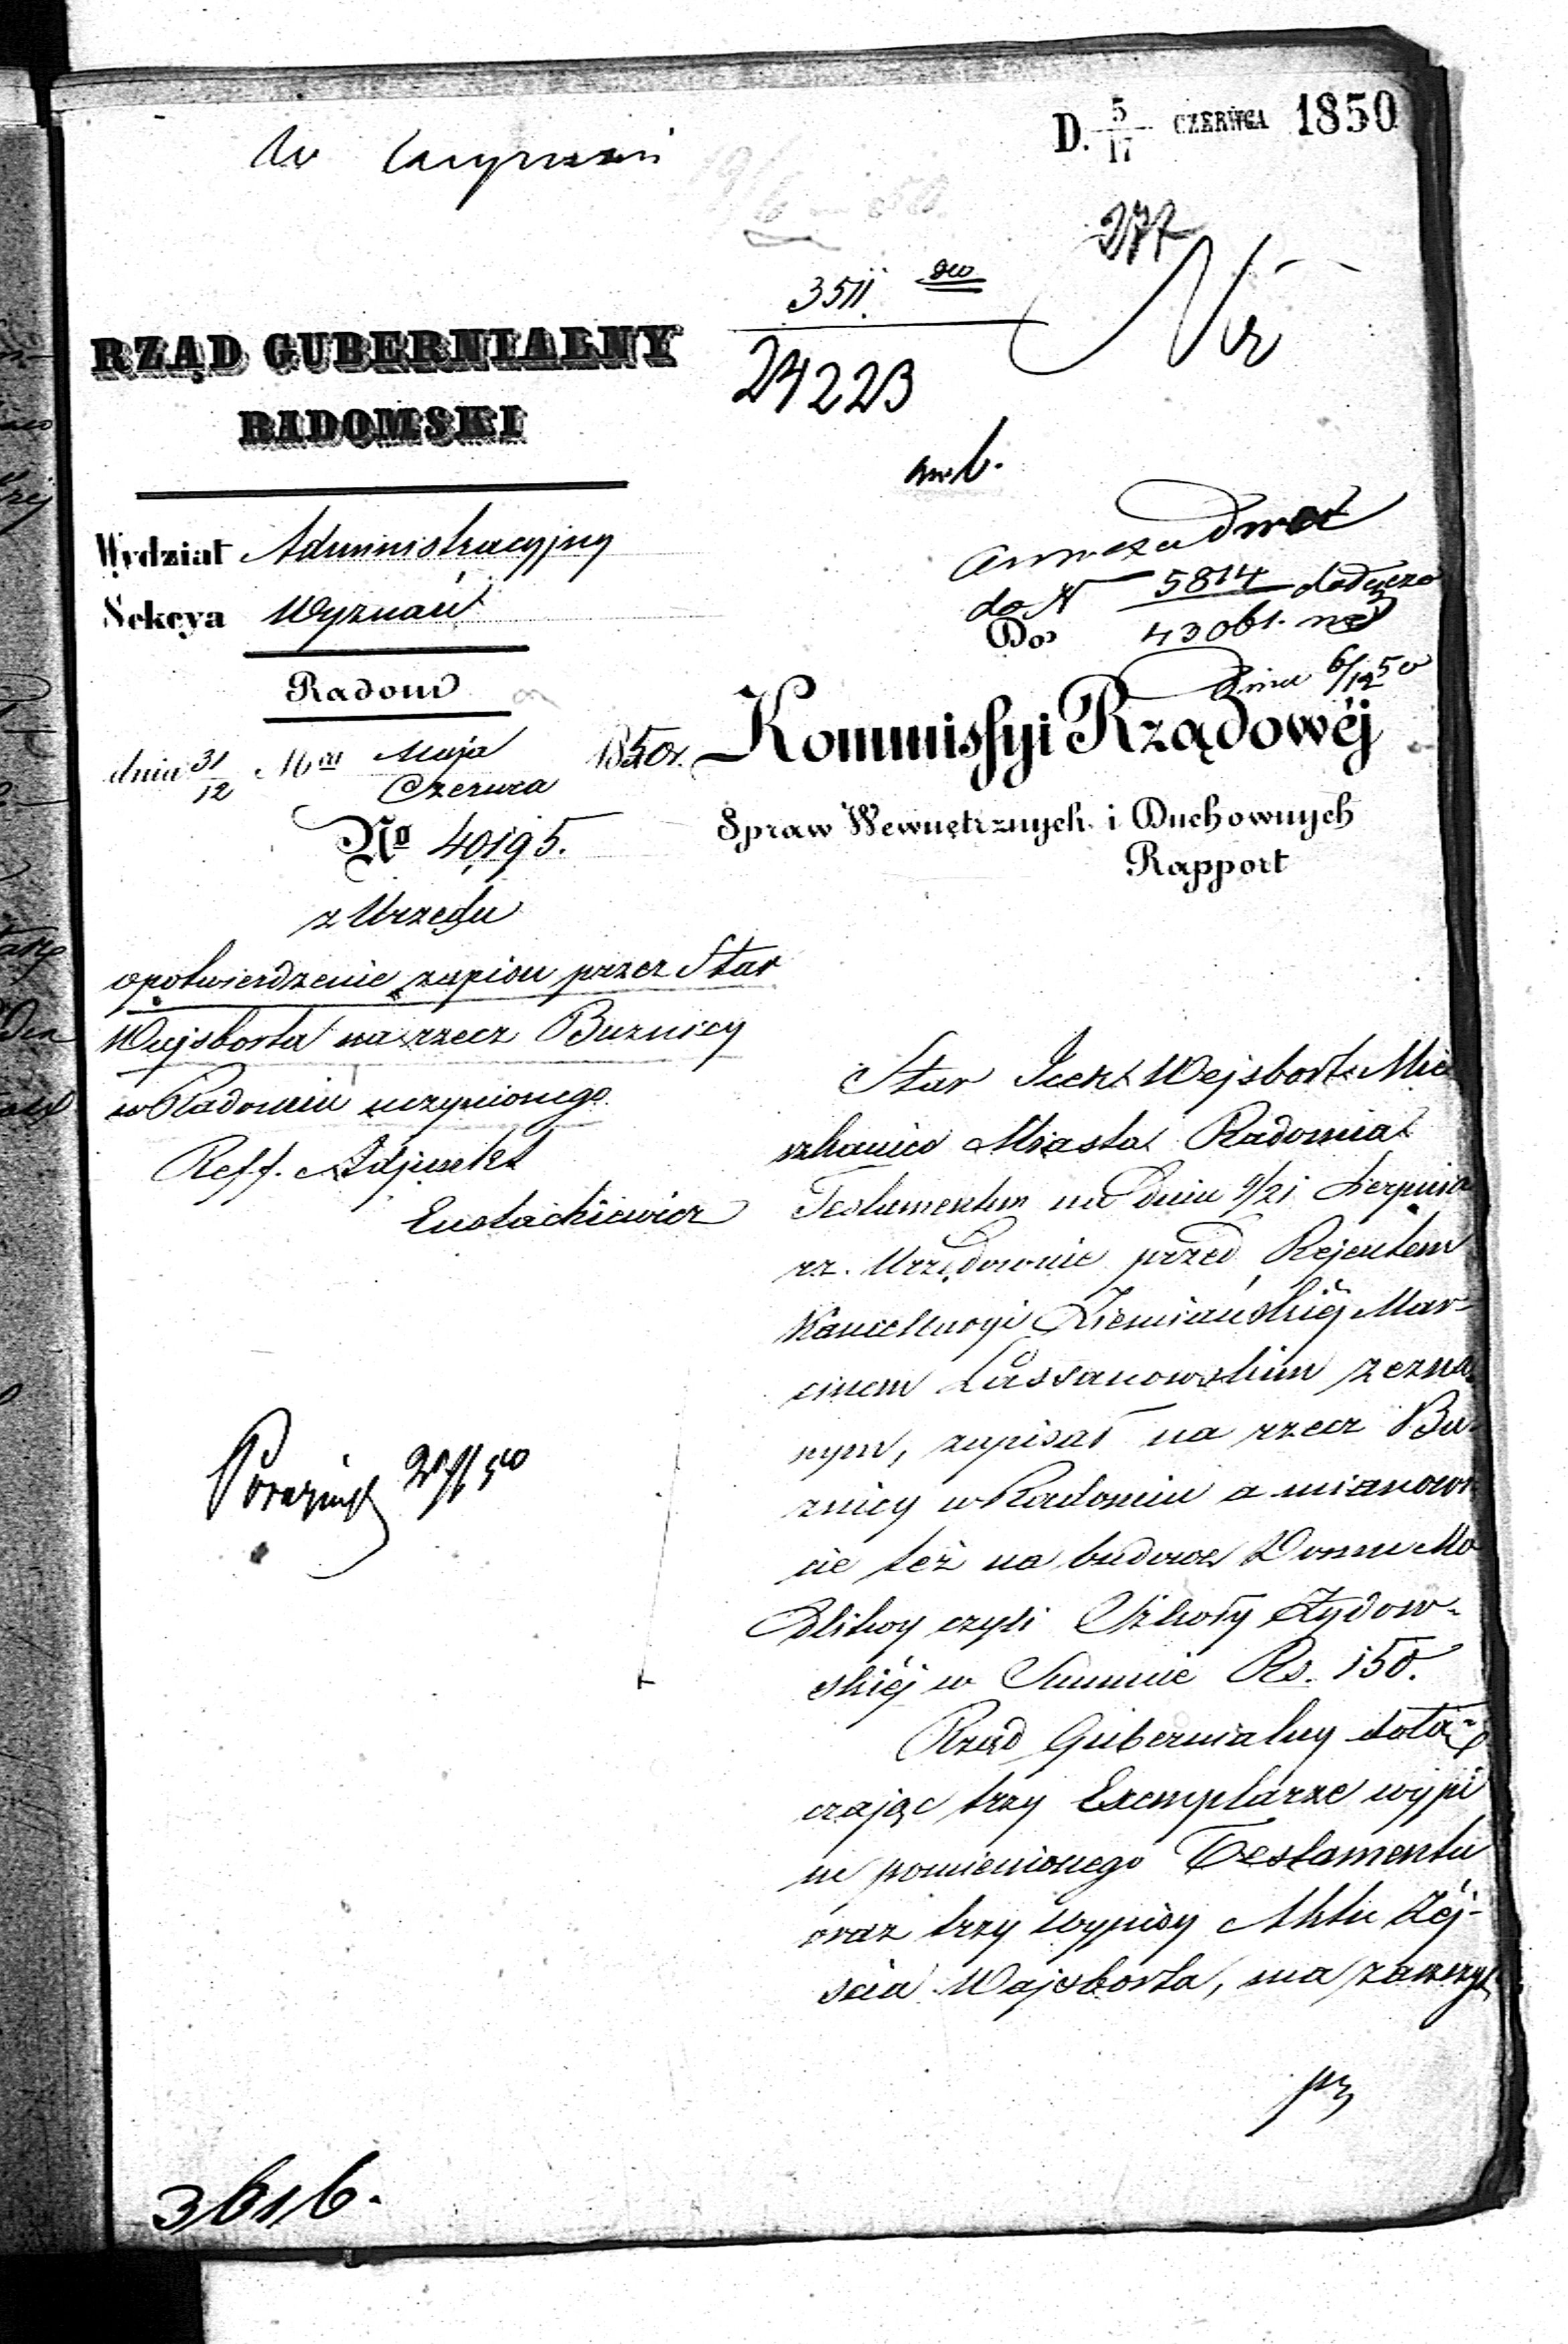 D. 5/17 CZERWCA 1850
277
3511
24223
RZĄD GUBERNIALNY
RADOMSKI
Wydział Administracyjny
Sekcya Wyznań
Radom
dnia 31/12 Mca Maja/Czerwca 1850 r.
No 40,195.
z Urzędu
o potwierdzenie zapisu przez Star
Wejsborta na rzecz Buznicy
w Radomiu uczynionego.
Reff. Adjunkt
Eustachiewicz
do N 5814
43061.
dnia 6/12 50
Do
Kommissyi Rządowéj
Spraw Wewnętrznych i Duchownych
Rapport
Star Icek Wejsbort Mie
szkaniec Miasta Radomia
Testamentem na dniu 9/21 Sierpnia
rz. Urzędownie przed Rejentem
Kancellaryi Ziemiańskiéj Mar-
cinem Lassanowskim zezna
nym, zapisał na rzecz Bu-
znicy w Radomiu a mianowi
cie też na budowę Domu Mo
dlitwy czyli Szkoły Żydow-
skiéj w Summie Rs. 150.
Rząd Gubernialny dołą-
czając trzy Exemplarze wypi
su pomienionego Testamentu
oraz trzy wypisy Aktu Zéj-
ścia Wajsborta, ma zaszczyt
3616.